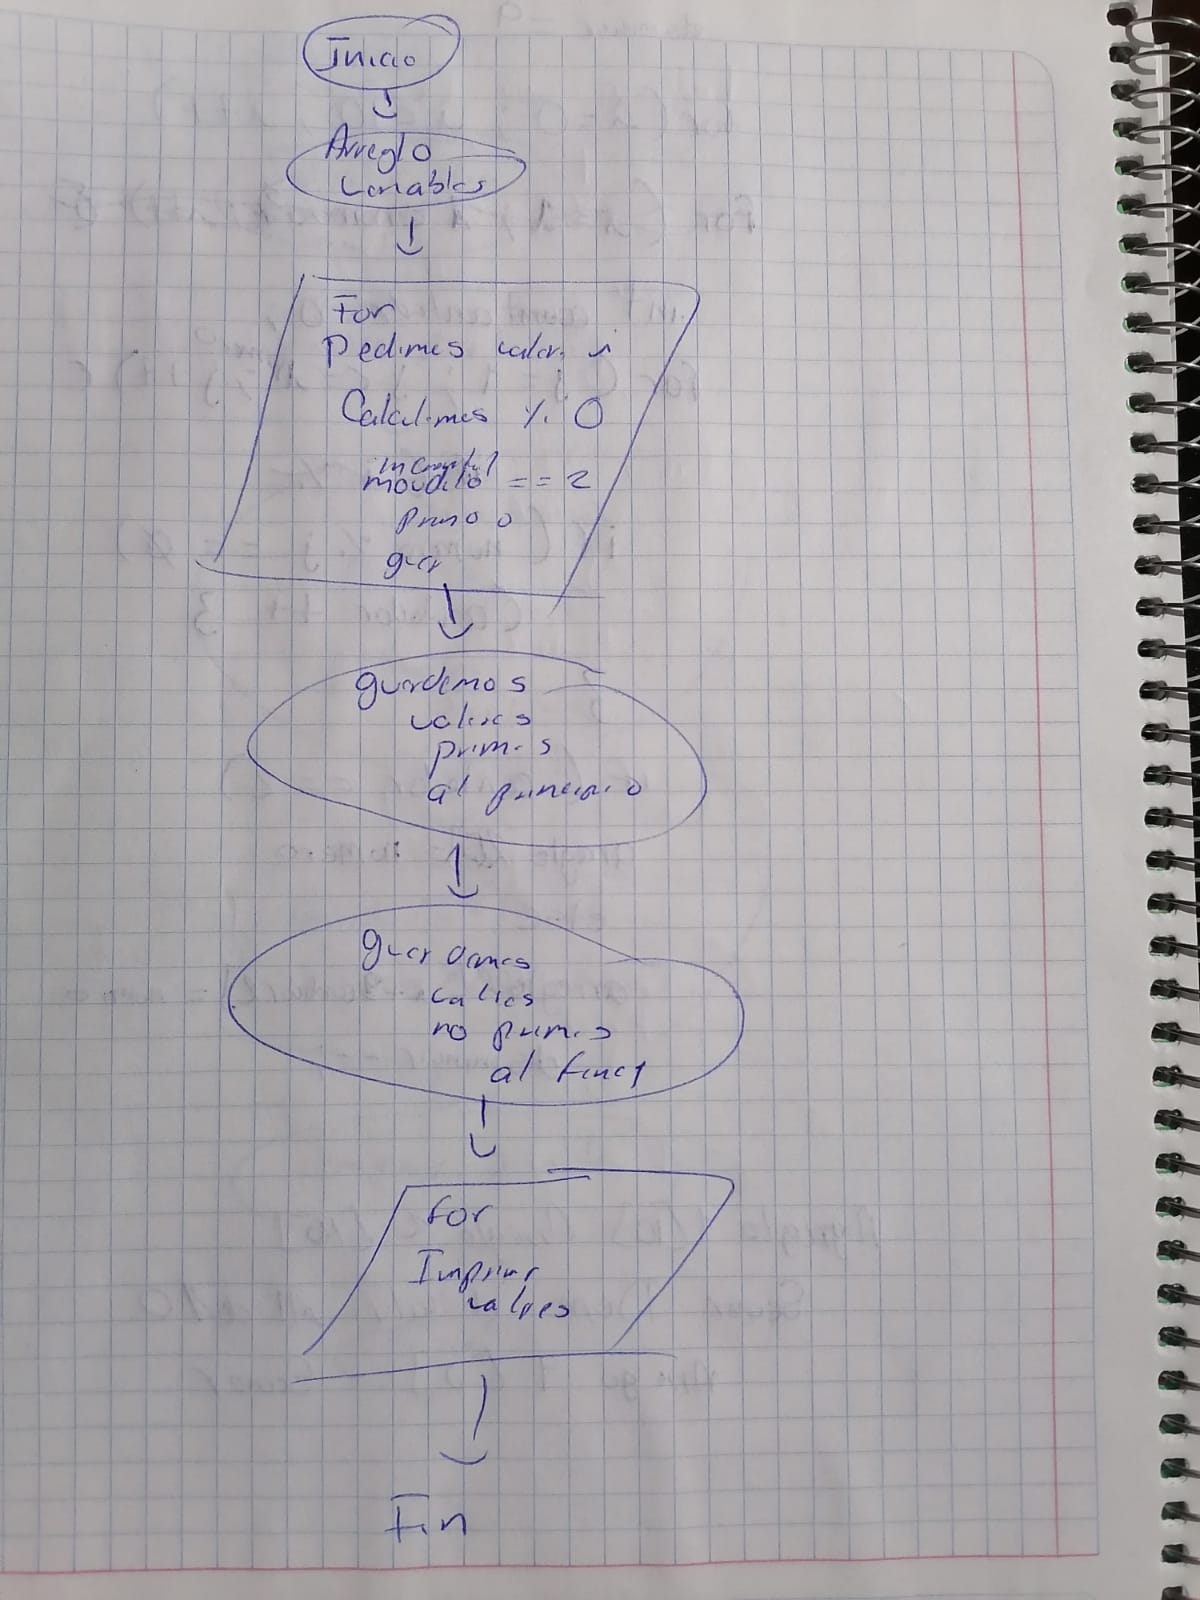 Inicio
Arreglo
variables
For
Pedimos valor
Calculimos % 0
modulo == 2
primo o
guar
guardemos
valores
primos
al principio
guardamos
valores
no primos
al final
for
Imprimir
valores
Fin